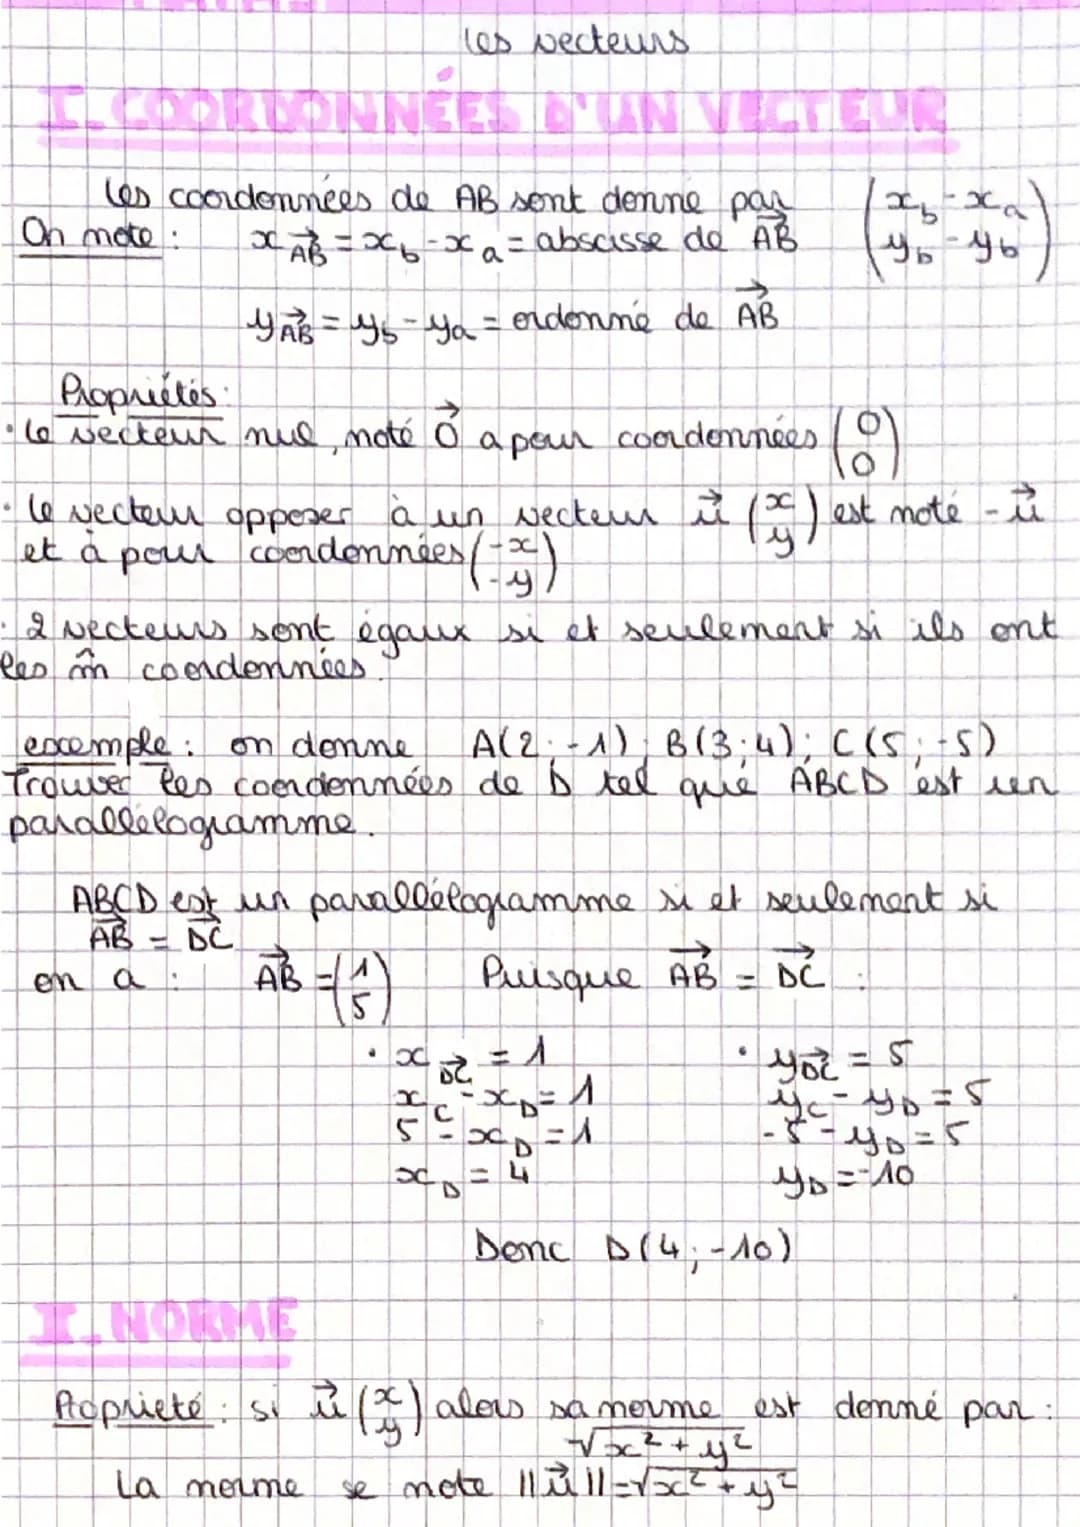 les vecteurs
I. COORDONNÉES D'UN VECTEUR
les coordonnées de AB sont donne par (x_b - x_a / y_b - y_b)
On note : x_AB→ = x_b - x_a = abscisse de AB→
y_AB→ = y_b - y_a = ordonné de AB→
Propriétés :
• le vecteur nul, noté 0→ a pour coordonnées (0 / 0)
• le vecteur opposer à un vecteur u→ (x / y) est noté -u→
et à pour coordonnées (-x / -y)
• 2 vecteurs sont égaux si et seulement si ils ont
les m̂ coordonnées.
exemple : on donne A(2 ; -1) ; B(3 ; 4) ; C(5 ; -5)
Trouver les coordonnées de D tel que ABCD est un
parallélogramme.
ABCD est un parallélogramme si et seulement si
AB→ = DC→
on a : AB→ = (1 / 5) Puisque AB→ = DC→ :
• x_DC→ = 1 • y_DC→ = 5
x_C - x_D = 1 y_C - y_D = 5
5 - x_D = 1 -5 - y_D = 5
x_D = 4 y_D = -10
Donc D(4 ; -10)
I. NORME
Propriété : si u→ (x / y) alors sa norme est donné par :
√x² + y²
La norme se note ||u→|| = √x² + y²